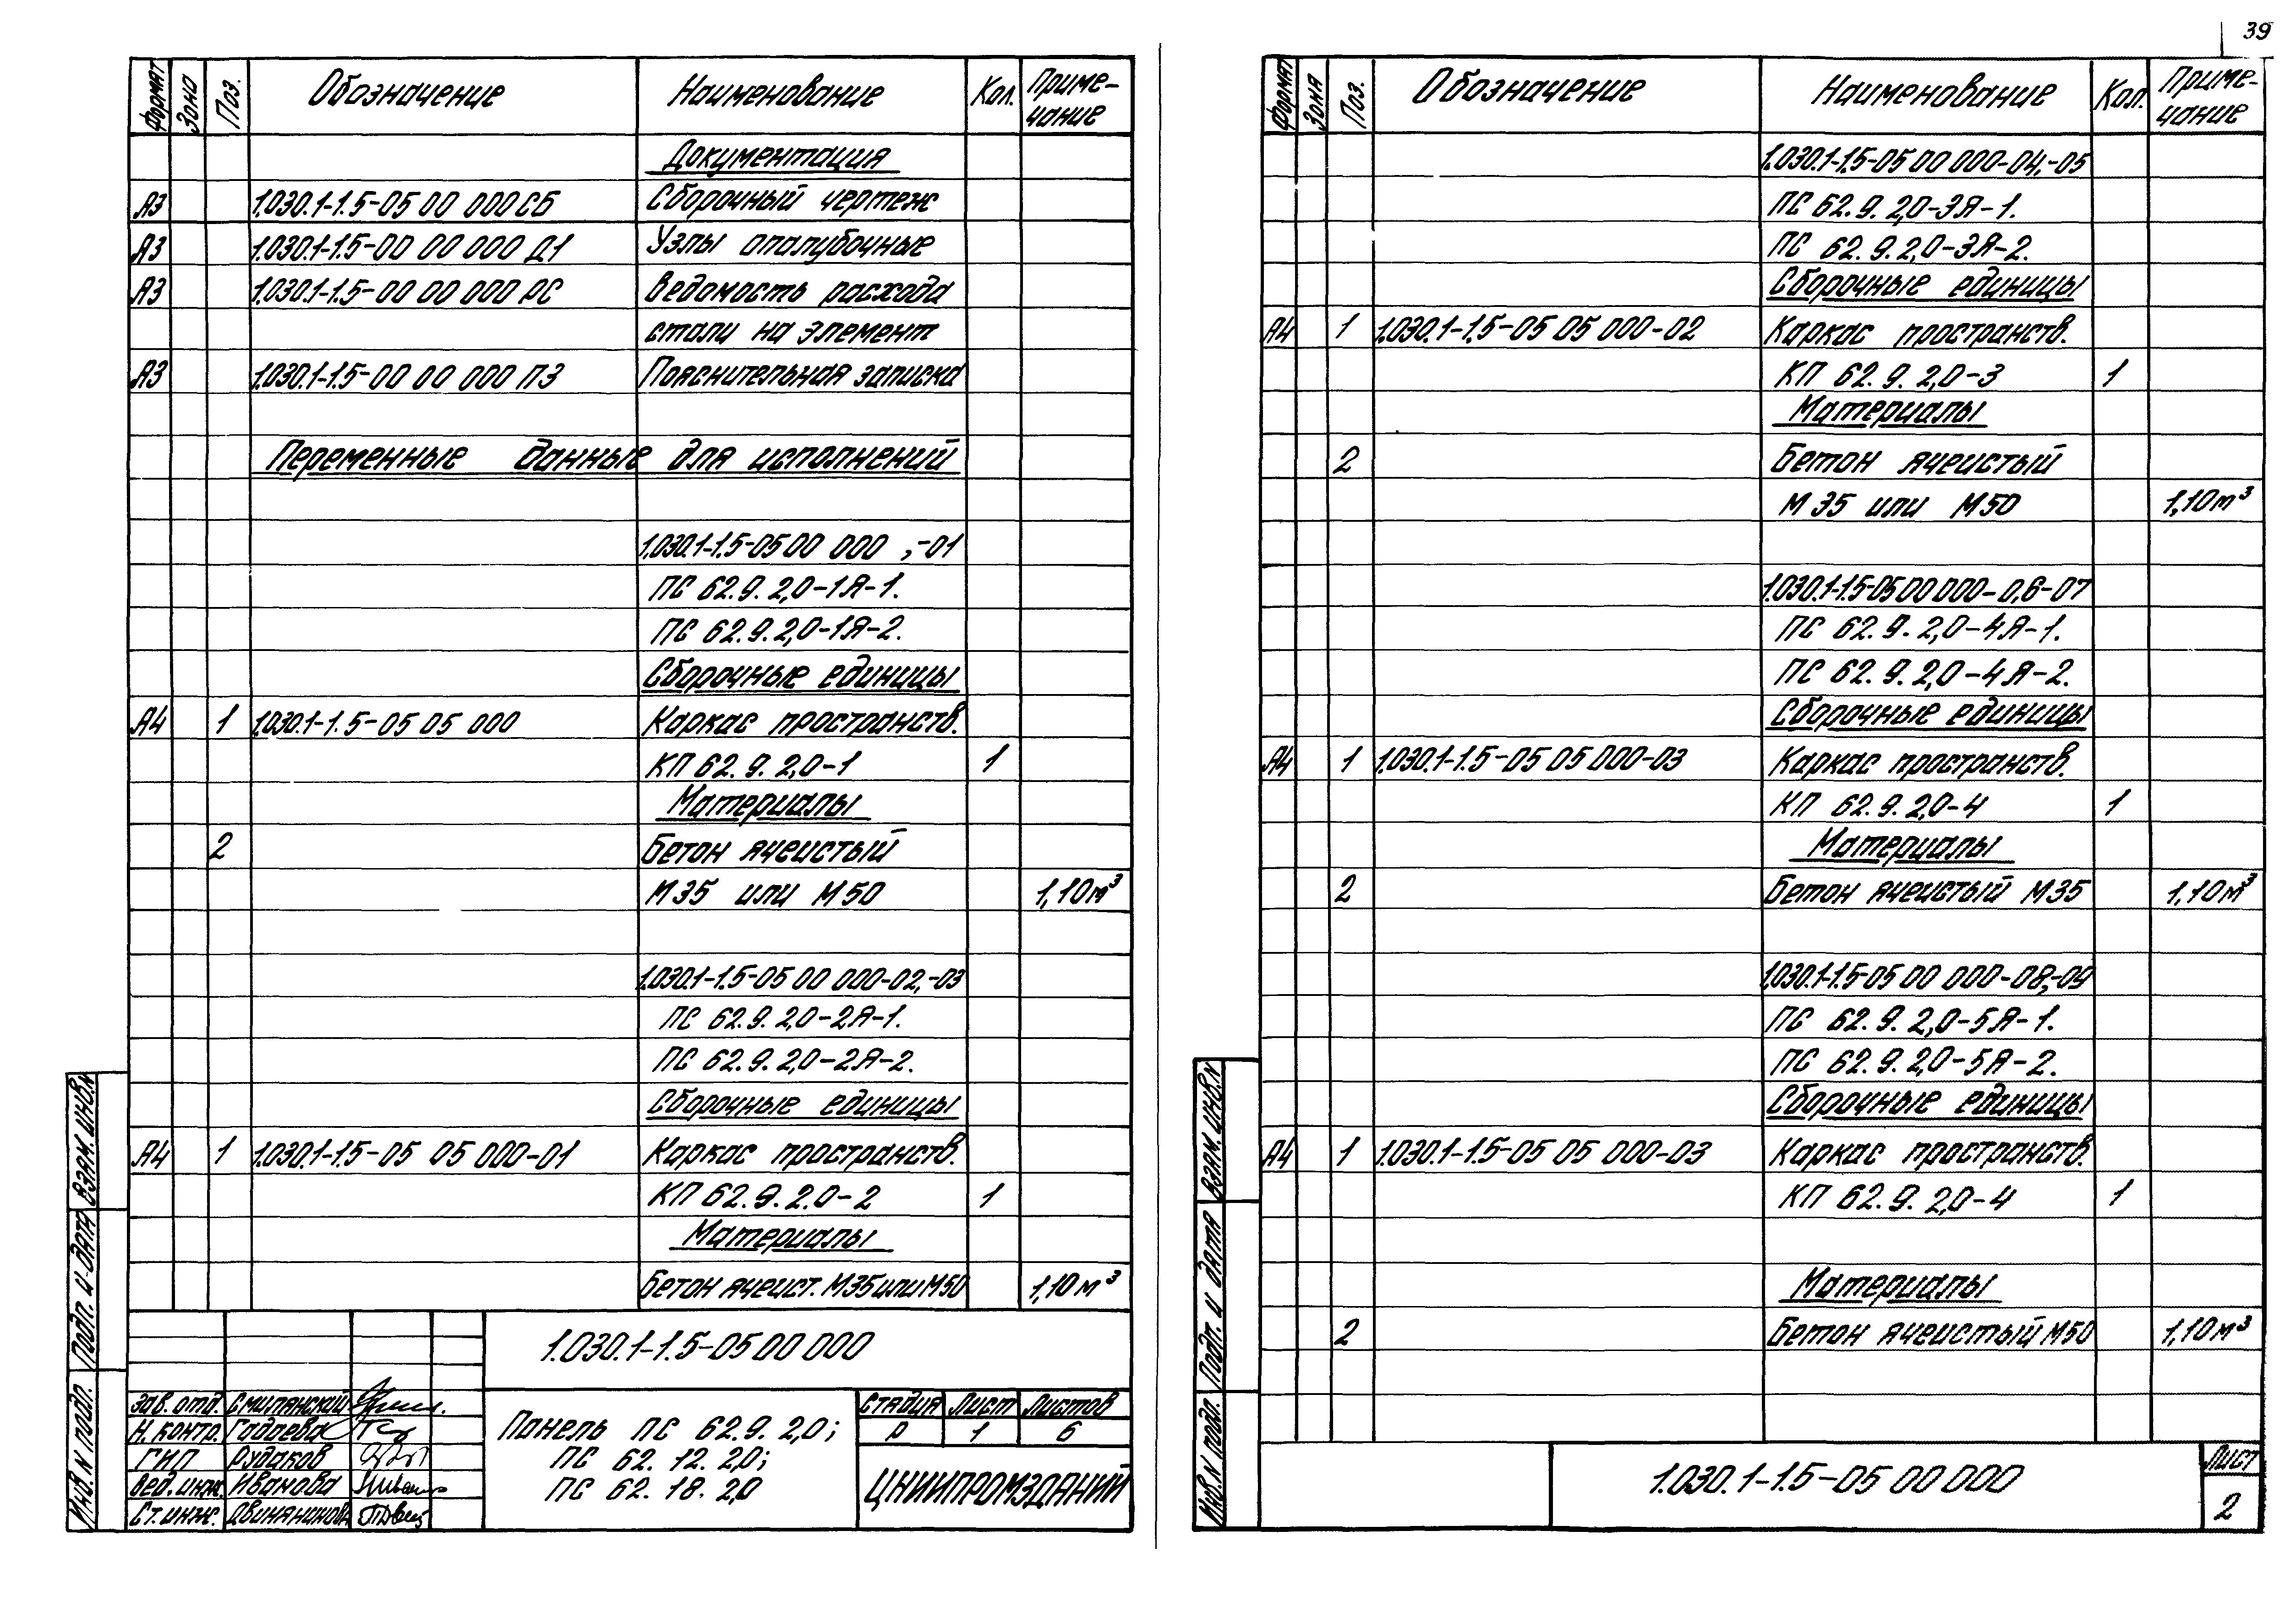 39
Формат Зона Поз. Обозначение Наименование Кол. Приме-
чание
Документация
А3 1.030.1-1.5-05 00 000 СБ Сборочный чертеж
А3 1.030.1-1.5-00 00 000 Д1 Узлы опалубочные
А3 1.030.1-1.5-00 00 000 РС Ведомость расхода
стали на элемент
А3 1.030.1-1.5-00 00 000 ПЗ Пояснительная записка
Переменные данные для исполнений
1.030.1-1.5-05 00 000 ,-01
ПС 62.9. 2,0-1Я-1.
ПС 62.9. 2,0-1Я-2.
Сборочные единицы
А4 1 1.030.1-1.5-05 05 000 Каркас пространств.
КП 62.9. 2,0-1 1
Материалы
2 Бетон ячеистый
М35 или М50 1,10 м³
1.030.1-1.5-05 00 000-02,-03
ПС 62.9. 2,0-2Я-1.
ПС 62.9. 2,0-2Я-2.
Сборочные единицы
А4 1 1.030.1-1.5-05 05 000-01 Каркас пространств.
КП 62.9. 2.0-2 1
Материалы
Бетон ячеист. М35 или М50 1,10 м³
1.030.1-1.5-05 00 000
Зав. отд. Смилянский
Н. контр. Гадаева
ГИП Рудаков
Вед. инж. Иванова
Ст. инж. Двинянинова
Панель ПС 62.9. 2,0;
ПС 62. 12. 2,0;
ПС 62. 18. 2,0
Стадия Лист Листов
Р 1 6
ЦНИИПРОМЗДАНИЙ
Инв. N подл. Подп. и дата Взам. инв. N
Формат Зона Поз. Обозначение Наименование Кол. Приме-
чание
1.030.1-1.5-05 00 000-04,-05
ПС 62.9. 2,0-3Я-1.
ПС 62.9. 2,0-3Я-2.
Сборочные единицы
А4 1 1.030.1-1.5-05 05 000-02 Каркас пространств.
КП 62.9. 2,0-3 1
Материалы
2 Бетон ячеистый
М 35 или М50 1,10 м³
1.030.1-1.5-05 00 000-0,6-07
ПС 62.9. 2,0-4Я-1.
ПС 62.9. 2,0-4Я-2.
Сборочные единицы
А4 1 1.030.1-1.5-05 05 000-03 Каркас пространств.
КП 62.9. 2,0-4 1
Материалы
2 Бетон ячеистый М35 1,10 м³
1.030.1-1.5-05 00 000-08,-09
ПС 62.9. 2,0-5Я-1.
ПС 62.9. 2,0-5Я-2.
Сборочные единицы
А4 1 1.030.1-1.5-05 05 000-03 Каркас пространств.
КП 62.9. 2,0-4 1
Материалы
2 Бетон ячеистый М50 1,10 м³
1.030.1-1.5-05 00 000
Лист
2
Инв. N подл. Подп. и дата Взам. инв. N